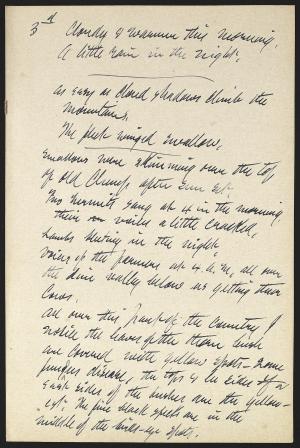 3d Cloudy & warmer this morning.
A little rain in the night.
as easy as cloud shadows climb the
mountains.
The fleet winged swallow,
swallows were skimming over the top
of old Clump after sun set.
Two hermits sang at 4 in the morning
their voices a little cracked.
Lambs bleating in the night
Voices of the farmers at 4 A.M., all over
the valley below us getting their
Cows.
All over this part of the country I
notice the leaves of the thorn bush
are covered with yellow spots - some
fungus disease, the tops & sides of a
sides of the bushes are the yellow-
est. The fine black specks are in the
middle of the bird-eye spots.